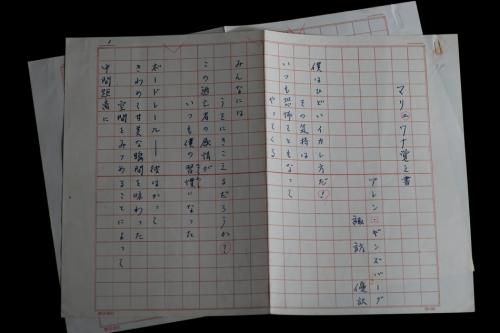 マリファナ覚え書
アレン・ギンズバーグ
諏訪 優訳
僕はひどいイカレ方だ!
その気持は
いつも恐怖をともなって
やってくる
みんなには
うそにきこえるだろうか?
この逃亡者の感情が
いつも僕の習慣になった
ボードレール――彼はかつて
きわめて甘美な瞬間を味わった
空間をみつめることによって
中間距離に